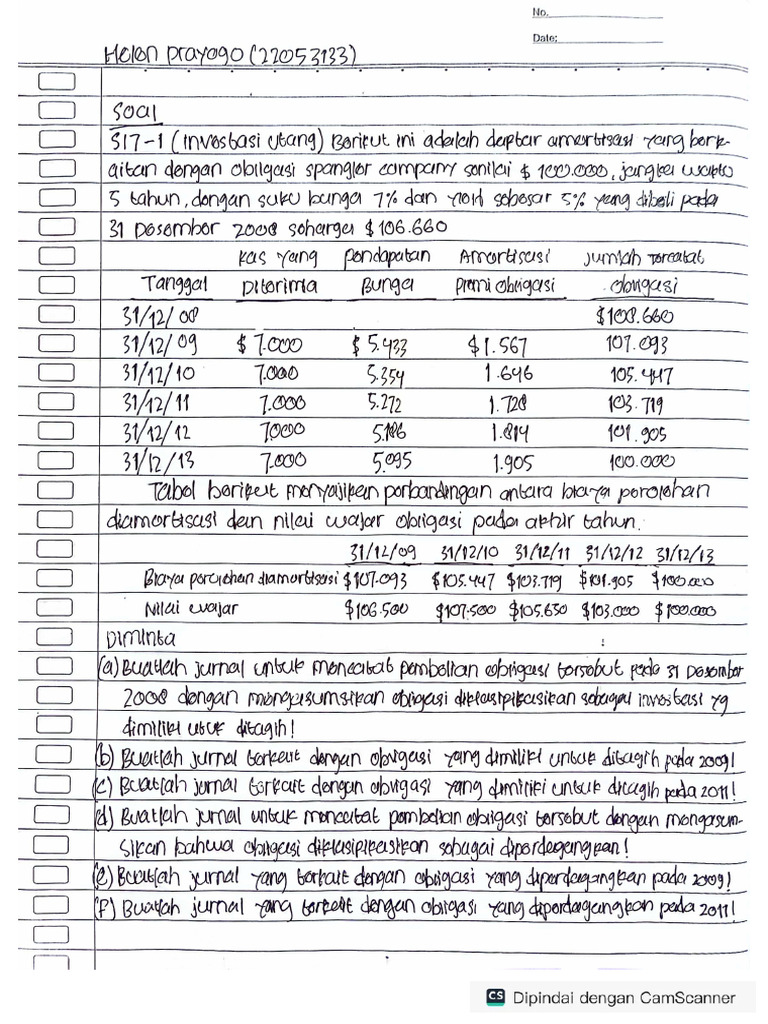 No.
Date:
Helen Prayogo (22053133)
Soal
S17-1 (Investasi Utang) Berikut ini adalah daftar amortisasi yang berk-
aitan dengan obligasi spangler company senilai $ 100.000, jangka waktu
5 tahun, dengan suku bunga 7% dan yield sebesar 5% yang dibeli pada
31 Desember 2008 seharga $ 106.660
Kas yang Pendapatan Amortisasi Jumlah Tercatat
Tanggal Diterima Bunga Premi Obrigasi Obrigasi
31/12/08 $108.660
31/12/09 $ 7.000 $ 5.433 $1.567 107.093
31/12/10 7.000 5.354 1.646 105.447
31/12/11 7.000 5.272 1.728 103.719
31/12/12 7000 5.186 1.814 101.905
31/12/13 7.000 5.095 1.905 100.000
Tabel berikut menyajikan perbandingan antara biaya perolehan
diamortisasi dan nilai wajar obligasi pada akhir tahun.
31/12/09 31/12/10 31/12/11 31/12/12 31/12/13
Biaya perolehan diamortisasi $107.093 $105.447 $103.719 $101.905 $100.000
Nilai wajar $106.500 $107.500 $105.650 $103.000 $100.000
Diminta
(a) Buatlah jurnal untuk mencatat pembelian obrigasi tersebut pada 31 Desember
2008 dengan mengasumsikan obligasi diklasipikasikan sebagai investasi yg
dimiliki utuk ditagih!
(b) Buatlah jurnal terkait dengan obligasi yang dimiliki untuk ditagih pada 2009!
(c) Buatlah jurnal terkait dengan obligasi yang dimiliki untuk ditagih pada 2011!
(d) Buatlah jurnal untuk mencatat pembelian obligasi tersebut dengan mengasum-
sikan bahwa obligasi diklasipikasikan sebagai diperdagangkan!
(e) Buatlah jurnal yang terkait dengan obligasi yang diperdagangkan pada 2009!
(f) Buatlah jurnal yang terkait dengan obligasi yang diperdagangkan pada 2011!
CS Dipindai dengan CamScanner